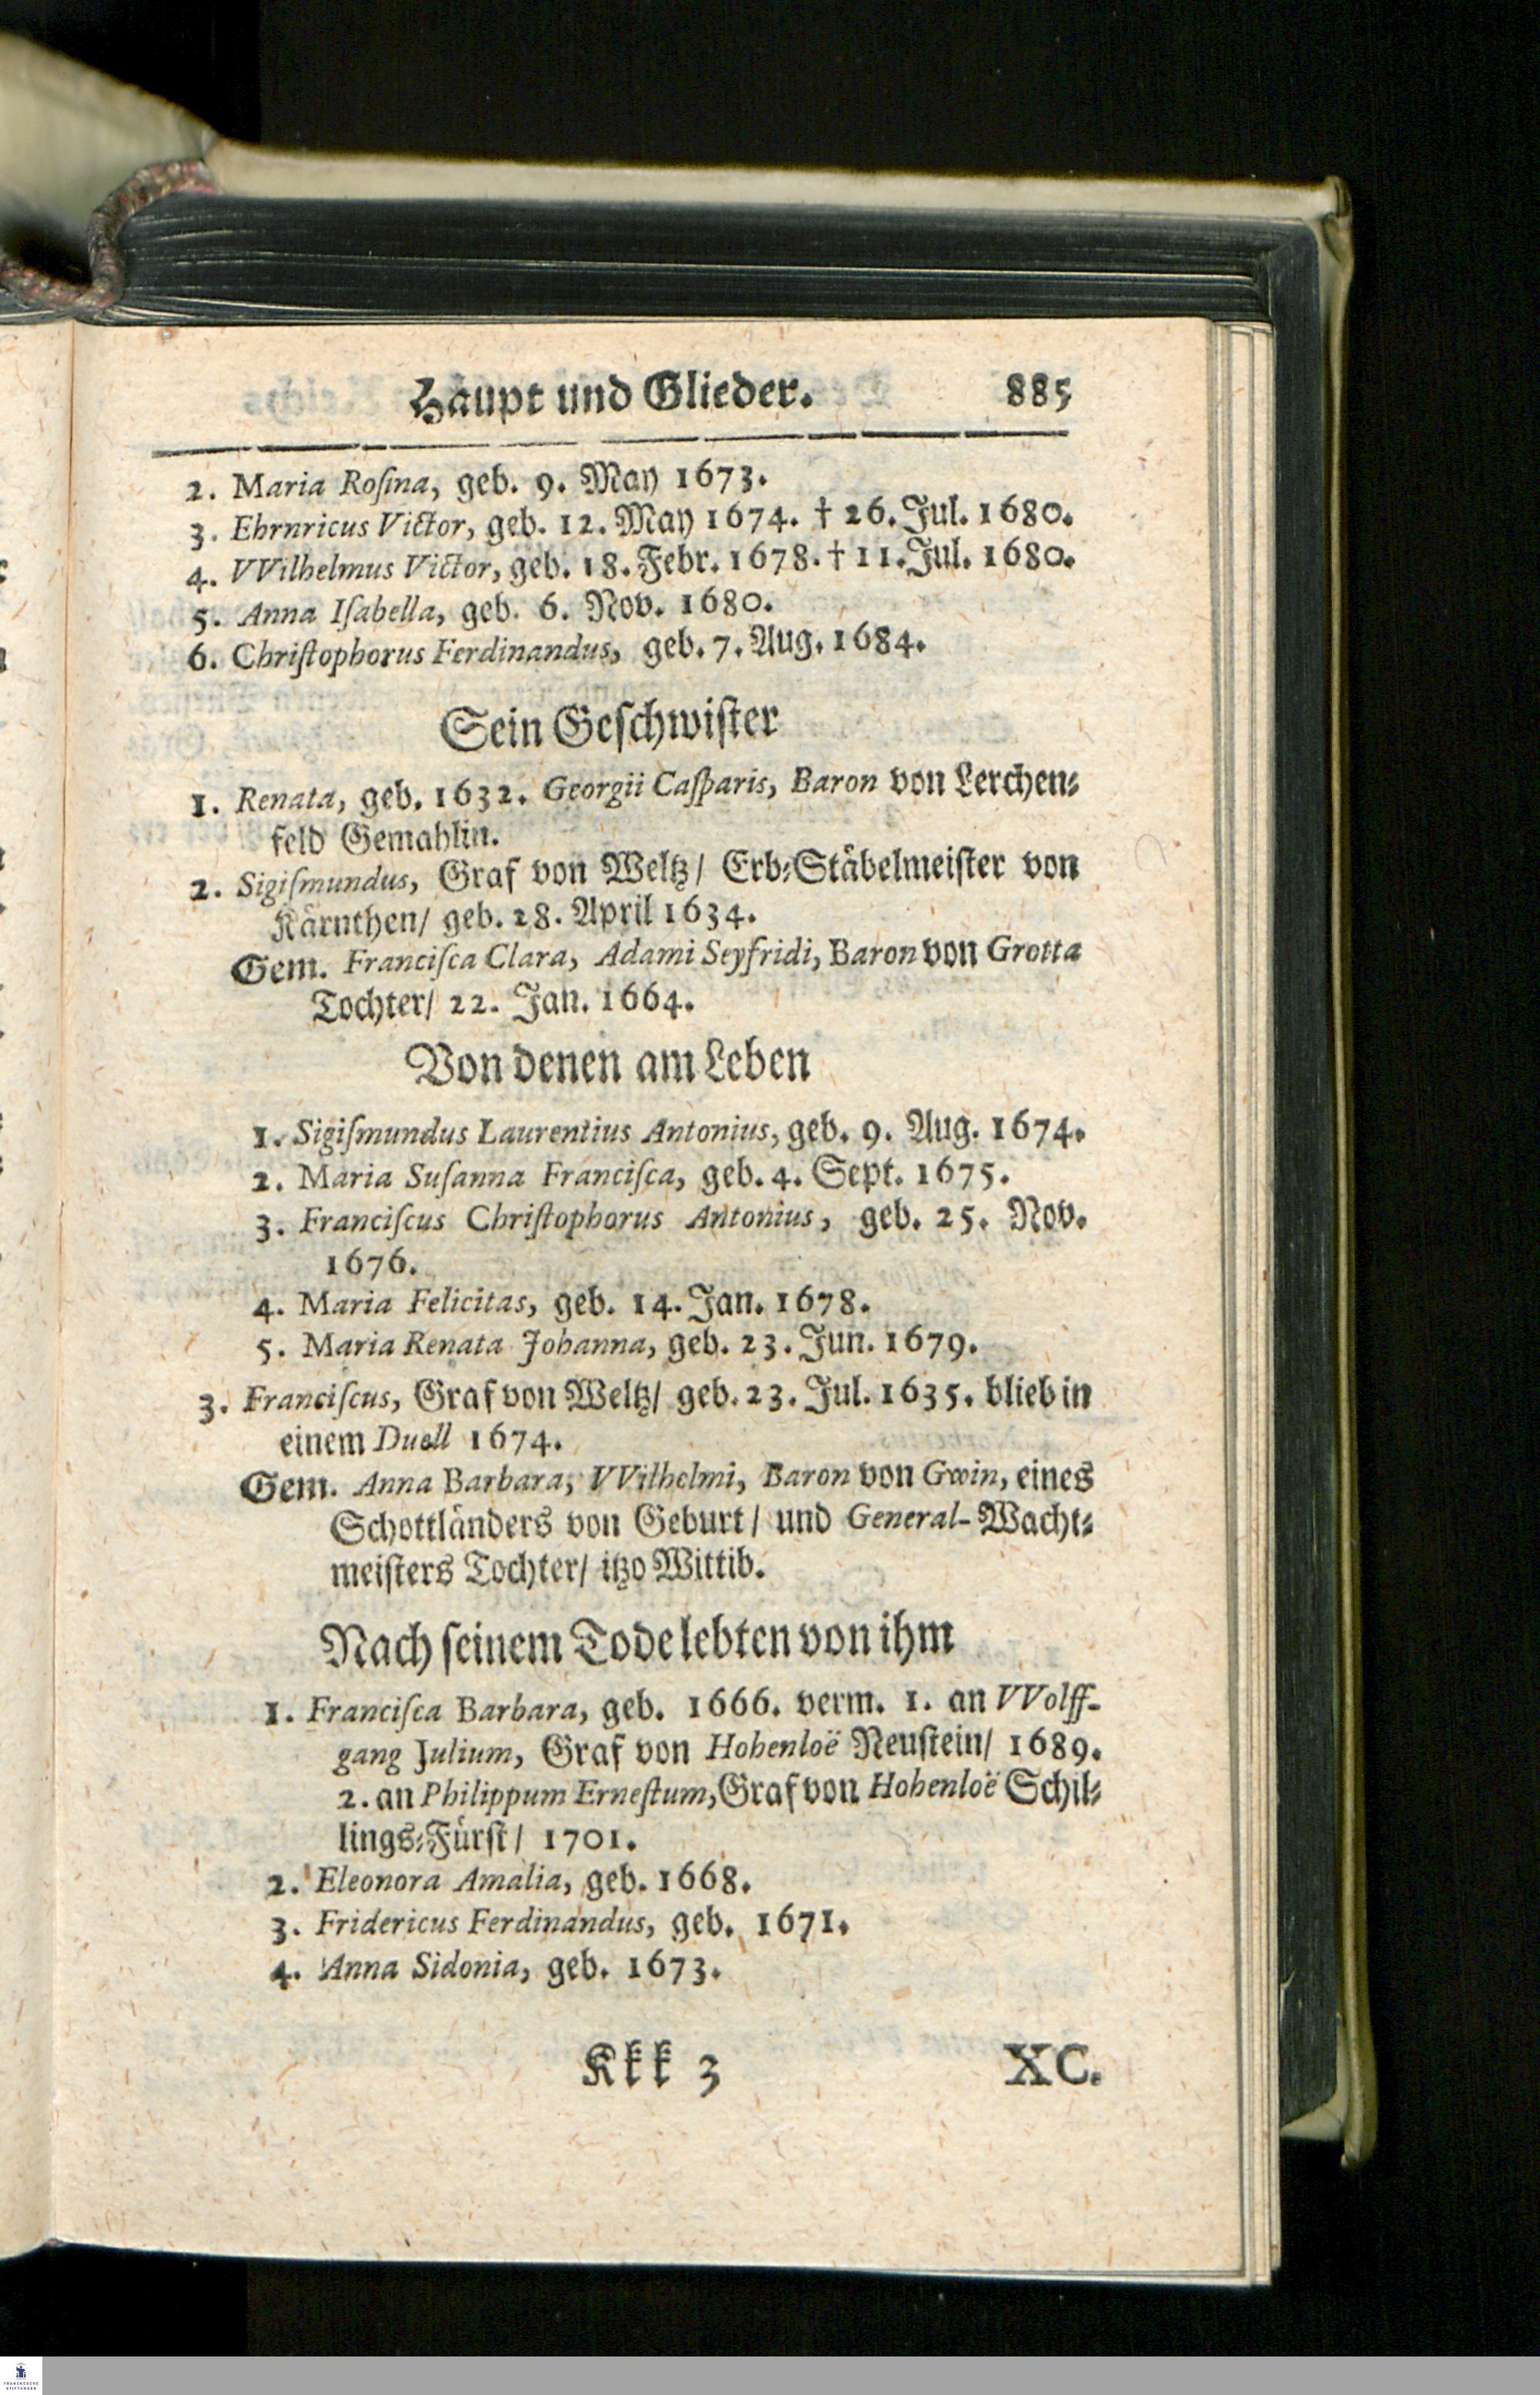 Häupt und Glieder. 885
2. Maria Roſina, geb. 9. May 1673.
3. Ehrnricus Victor, geb. 12. May 1674. † 26. Jul. 1680.
4. VVilhelmus Victor, geb. 18. Febr. 1678. † 11. Jul. 1680.
5. Anna Iſabella, geb. 6. Nov. 1680.
6. Chriſtophorus Ferdinandus, geb. 7. Aug. 1684.
Sein Geſchwiſter
1. Renata, geb. 1632. Georgii Caſparis, Baron von Lerchen⸗
feld Gemahlin.
2. Sigiſmundus, Graf von Weltz/ Erb⸗Stäbelmeiſter von
Kärnthen/ geb. 28. April 1634.
Gem. Franciſca Clara, Adami Seyfridi, Baron von Grotta
Tochter/ 22. Jan. 1664.
Von denen am Leben
1. Sigiſmundus Laurentius Antonius, geb. 9. Aug. 1674.
2. Maria Suſanna Franciſca, geb. 4. Sept. 1675.
3. Franciſcus Chriſtophorus Antonius, geb. 25. Nov.
1676.
4. Maria Felicitas, geb. 14. Jan. 1678.
5. Maria Renata Johanna, geb. 23. Jun. 1679.
3. Franciſcus, Graf von Weltz/ geb. 23. Jul. 1635. blieb in
einem Duell 1674.
Gem. Anna Barbara, VVilhelmi, Baron von Gwin, eines
Schottländers von Geburt/ und General-Wacht⸗
meiſters Tochter/ itzo Wittib.
Nach ſeinem Tode lebten von ihm
1. Franciſca Barbara, geb. 1666. verm. 1. an VVolff-
gang Julium, Graf von Hohenloë Neuſtein/ 1689.
2. an Philippum Erneſtum, Graf von Hohenloë Schil⸗
lings⸗Fürſt/ 1701.
2. Eleonora Amalia, geb. 1668.
3. Fridericus Ferdinandus, geb. 1671.
4. Anna Sidonia, geb. 1673.
Kkk 3 XC.
FRANCKESCHE
STIFTUNGEN